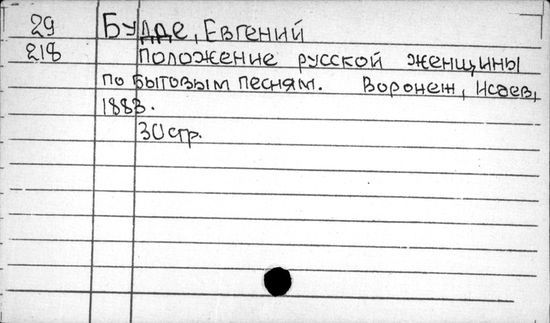 29 Будде, Евгений
218 Положение русской женщины
по бытовым песням. Воронеж, Исаев,
1883.
30 стр.